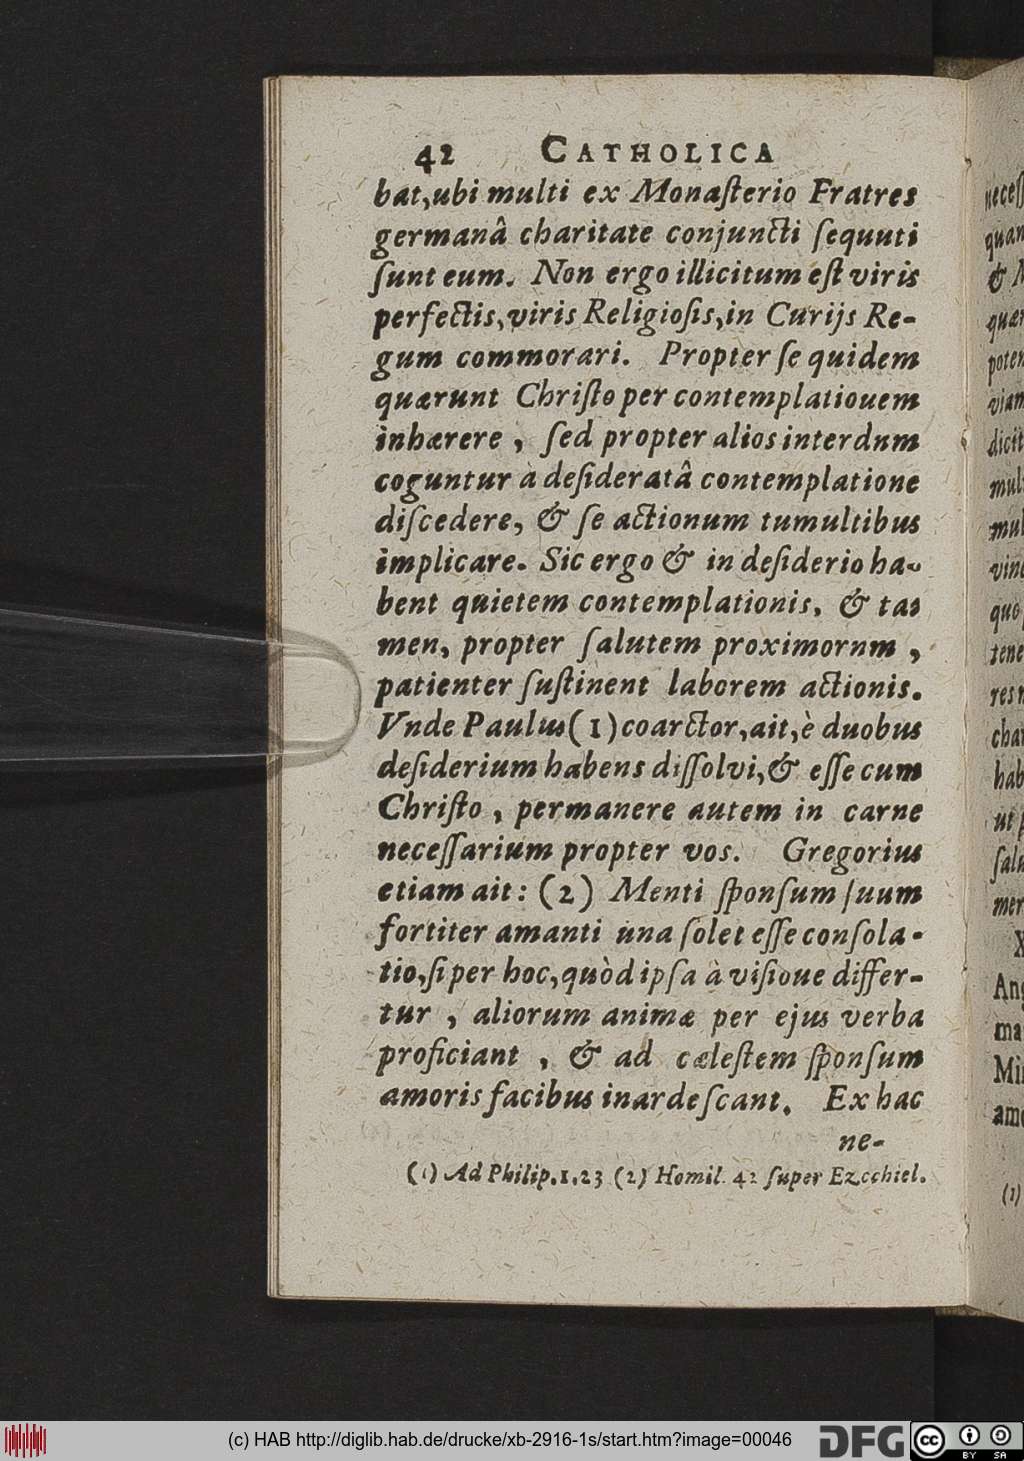 42 CATHOLICA
bat,ubi multi ex Monaſterio Fratres
germanâ charitate conjuncti ſequuti
ſunt eum. Non ergo illicitum eſt viris
perfectis,viris Religioſis,in Curijs Re-
gum commorari. Propter ſe quidem
quærunt Chriſto per contemplatiouem
inhærere , ſed propter alios interdnm
coguntur à deſideratâ contemplatione
diſcedere, & ſe actionum tumultibus
implicare. Sic ergo & in deſiderio ha-
bent quietem contemplationis, & ta-
men, propter ſalutem proximornm ,
patienter ſuſtinent laborem actionis.
Vnde Paulus (1) coarctor,ait,è duobus
deſiderium habens diſſolvi,& eſſe cum
Chriſto , permanere autem in carne
neceſſarium propter vos. Gregorius
etiam ait: (2) Menti ſponſum ſuum
fortiter amanti una ſolet eſſe conſola-
tio,ſi per hoc,quòd ipſa à viſioue differ-
tur , aliorum animæ per ejus verba
proficiant , & ad cæleſtem ſponſum
amoris facibus inardeſcant. Ex hac
ne-
(1) Ad Philip.1.23 (2) Homil. 42 ſuper Ezechiel.
neceſſ
quan
&
quær
poten
viam
dicit
mul
mul
vinc
quo
tene
res
char
hab
ut p
ſalu
mer
X
Ang
ma
Min
amo
(1)
(c) HAB http://diglib.hab.de/drucke/xb-2916-1s/start.htm?image=00046
DFG
cc
BY SA